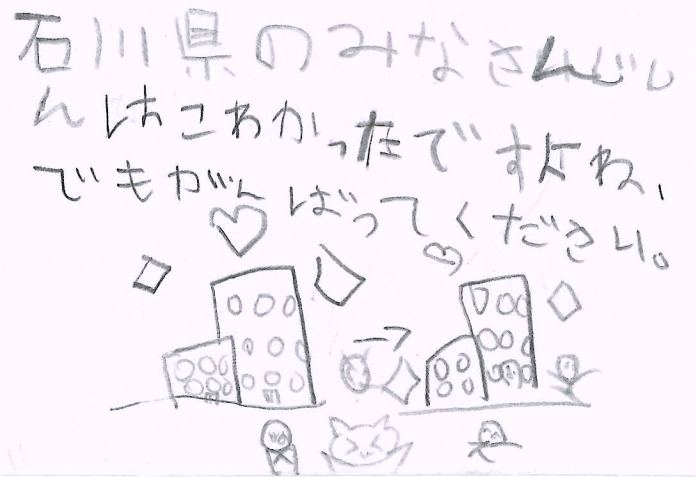 石川県のみなさんじし
んはこわかったですよね、
でもがんばってください。